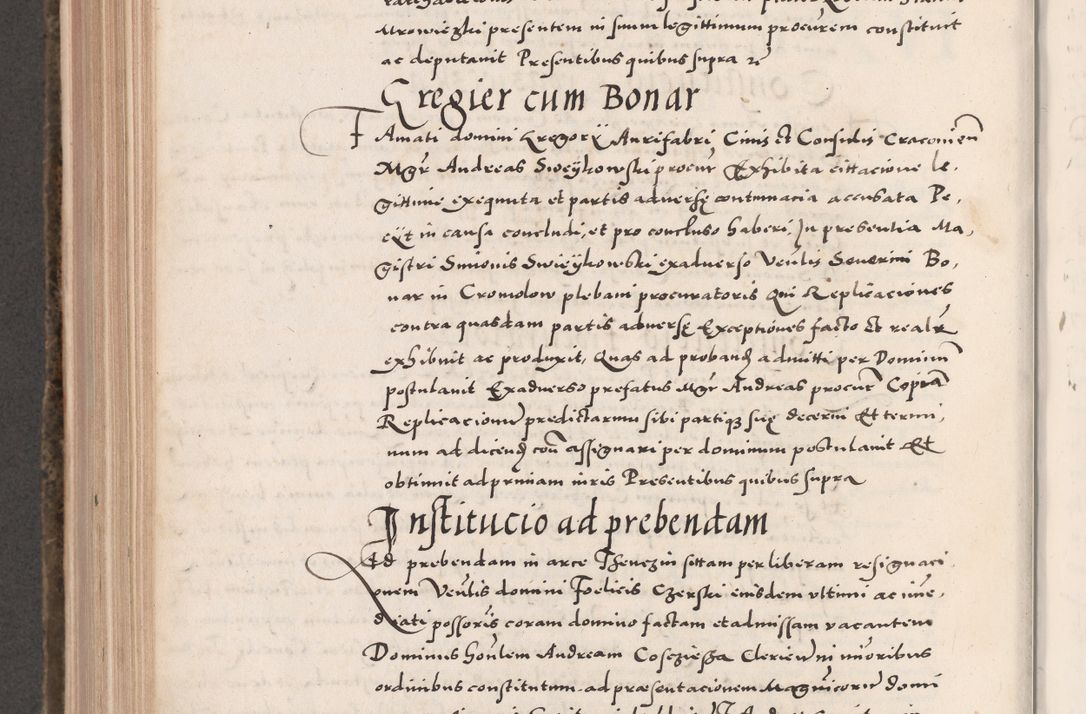 Mrowiegki presentem in suum legittimum procurem constituit
ac deputavit Presentibus quibus supra
Gregier cum Bonar
Famati domini Gregorÿ Aurifabri Civis et Consulis Cracovien
Mgr Andreas Swieÿkowski procur Exhibita cittacione le,
gittime exequuta et partis adversę contumacia accusata Pe,
cÿt in causa concludi, et pro concluso haberi, In presentia Ma,
gistri Simonis Swieÿkowski exadverso Venlis Severini Bo,
nar in Cromolow plebani procuratoris Qui Replicaciones
contra quasdam partis adversę Exceptiones facto et realr
exhibuit ac produxit, Quas ad proband admitti per Dominum
postulavit Exadverso prefatus Mgr Andreas procur Copiam
Replicacionum predictarum sibi partiqз suę decerni Et termi,
num ad dicend con assignari per dominum postulavit Et
obtinuit ad primam iuris Presentibus quibus supra
Institucio ad prebendam
Ad prebendam in arce Thenezin sittam per liberam resignaci,
onem Venlis domini Foelicis Czerski eiusdem ultimi ac imme,
diati possoris coram domino factam et admissam vacantem
Dominus honlem Andream Clericum in minoribus
ordinibus constitutum ad præsentacionem Magnificorum domi